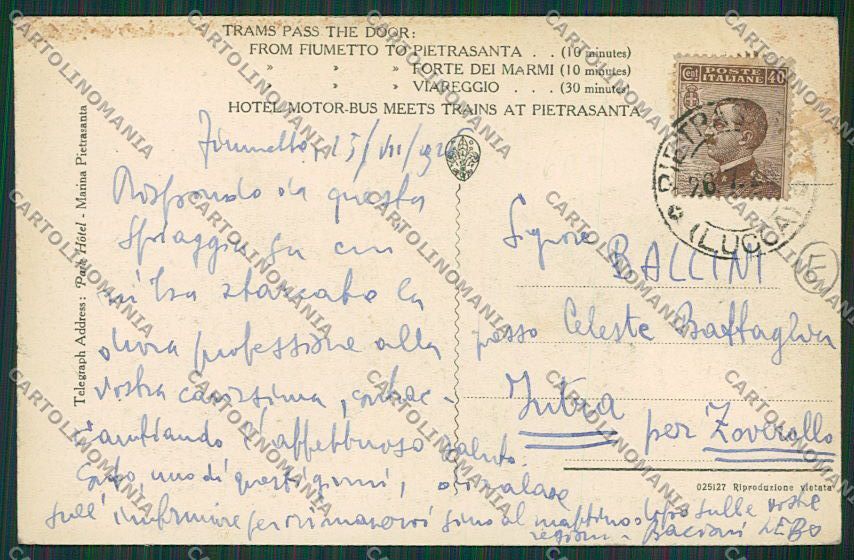 TRAMS PASS THE DOOR:
FROM FIUMETTO TO PIETRASANTA . . (10 minutes)
» » » FORTE DEI MARMI (10 minutes)
» » » VIAREGGIO . . . (30 minutes)
HOTEL MOTOR-BUS MEETS TRAINS AT PIETRASANTA
Telegraph Address: Park Hôtel - Marina Pietrasanta
POSTE ITALIANE
Cent 40
PIETRASANTA
(LUCCA)
Fiumetto, 25/VII/
Rispondo da questa
spiaggia su cui
m'ha sbarcato la
dura professione alla
vostra carissima, contrac-
cambiando l'affettuoso saluto.
Conto, uno di questi giorni, di salare
sull' per rimanervi sino al mattino dopo sulle vostre
regioni - Bacioni LEBO
Signore BALLINI
presso Celeste Battaglia
Intra per Zoverallo
025127 Riproduzione vietata
CARTOLINOMANIA